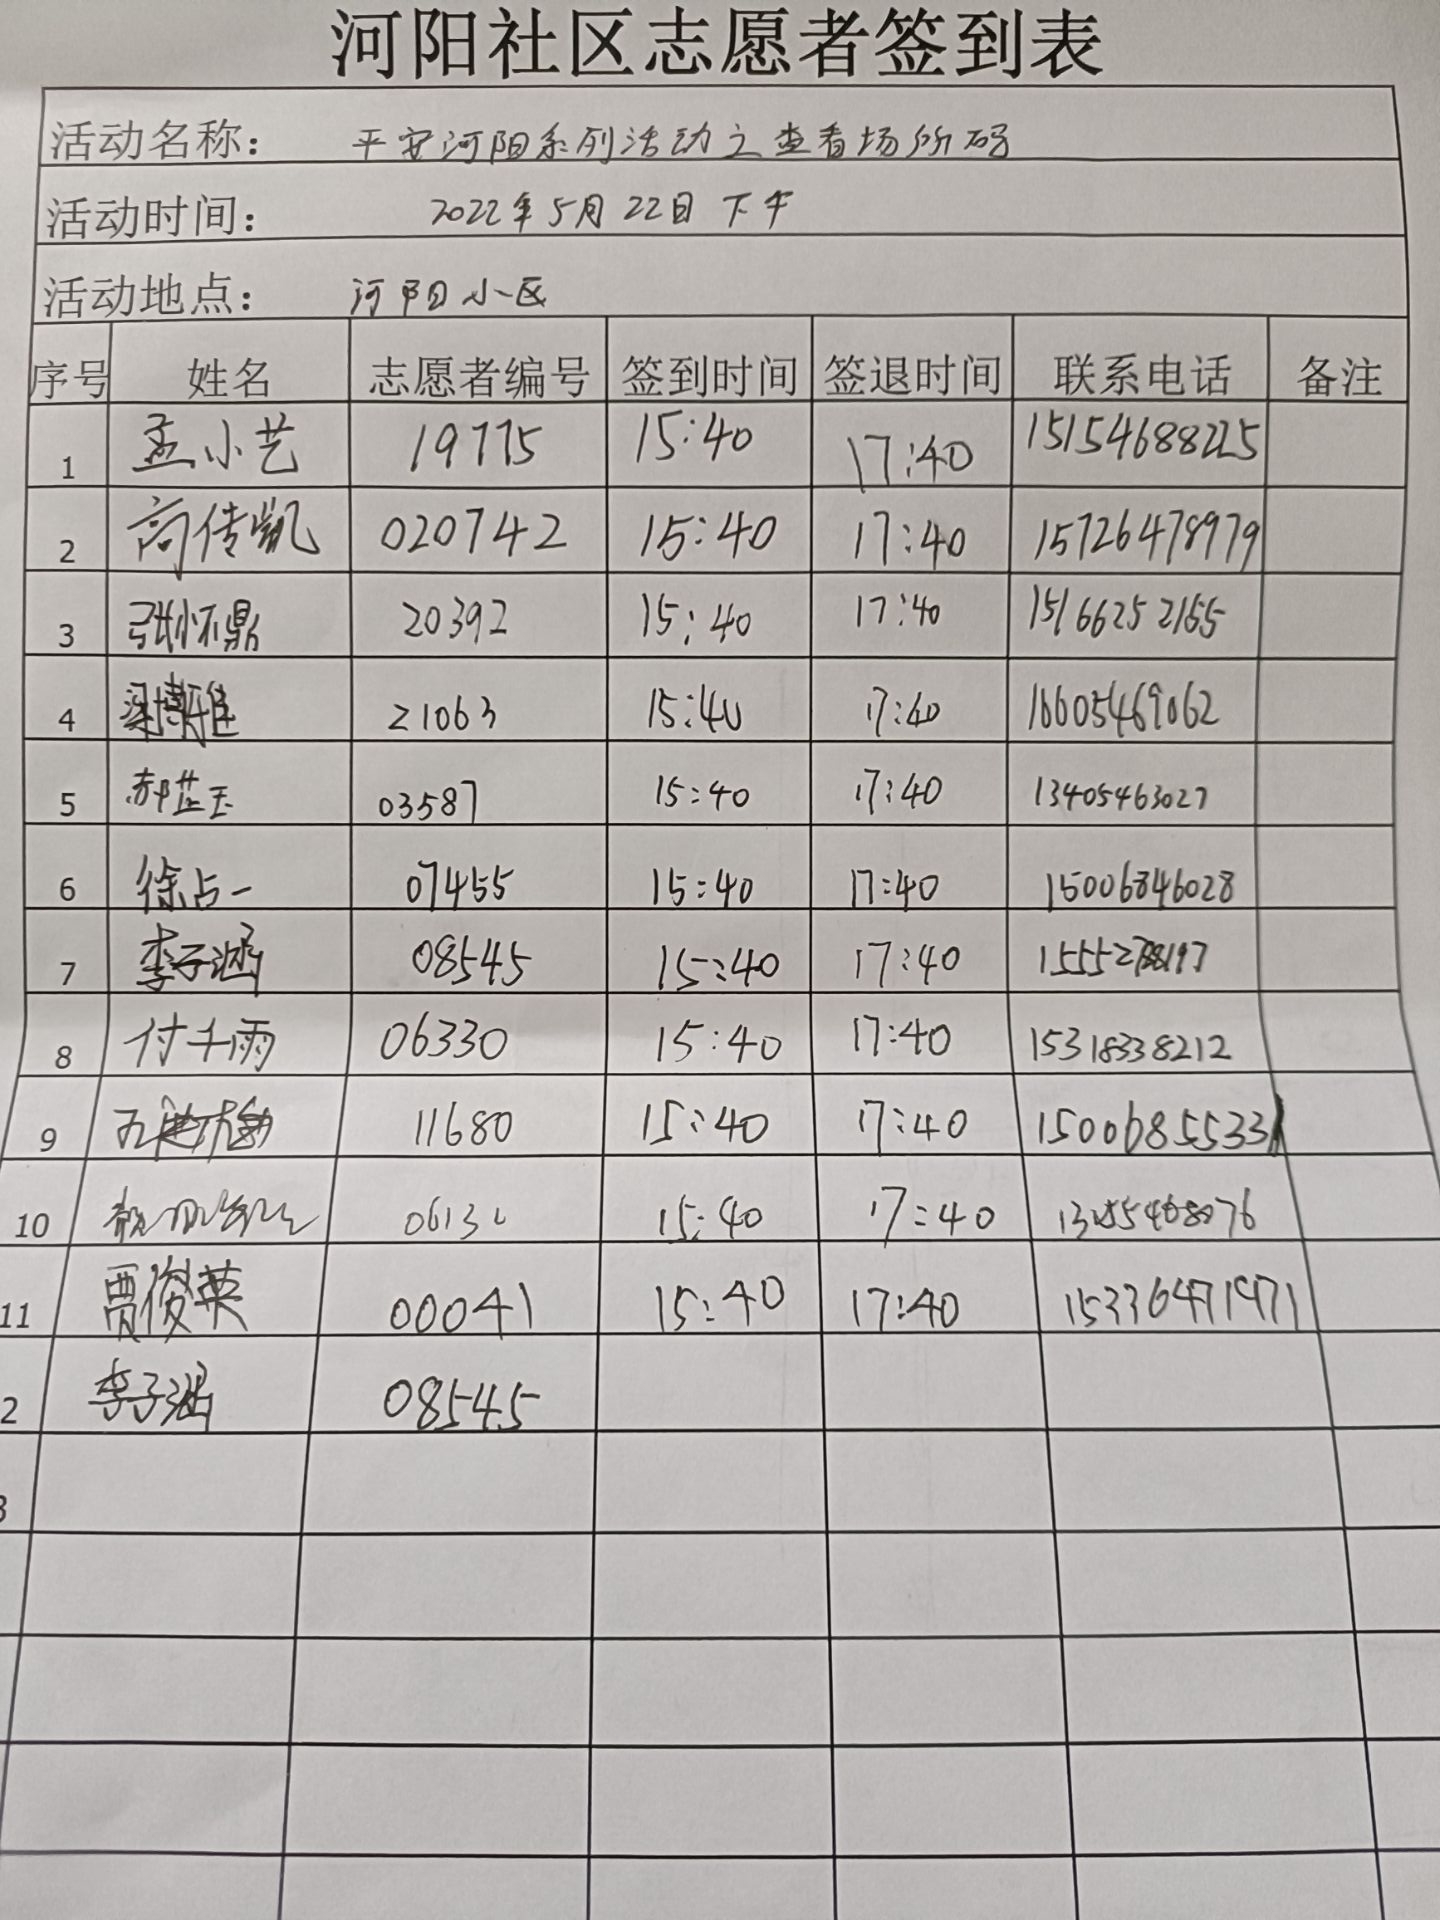 河阳社区志愿者签到表
活动名称： 平安河阳系列活动之查看场所码
活动时间： 2022年5月22日下午
活动地点： 河阳小区
序号 姓名 志愿者编号 签到时间 签退时间 联系电话 备注
1 孟小艺 19775 15:40 17:40 15154688225
2 高传凯 020742 15:40 17:40 15726478979
3 张怀鼎 20392 15:40 17:40 15166252155
4 梁博雅 21063 15:40 17:40 16605469062
5 郝芷玉 03587 15:40 17:40 13405463027
6 徐占一 07455 15:40 17:40 15006846028
7 李子涵 08545 15:40 17:40
8 付千雨 06330 15:40 17:40 15318338212
9 11680 15:40 17:40 15006855331
10 15:40 17:40
11 贾俊英 00041 15:40 17:40 15336471971
2 李子涵 08545
3